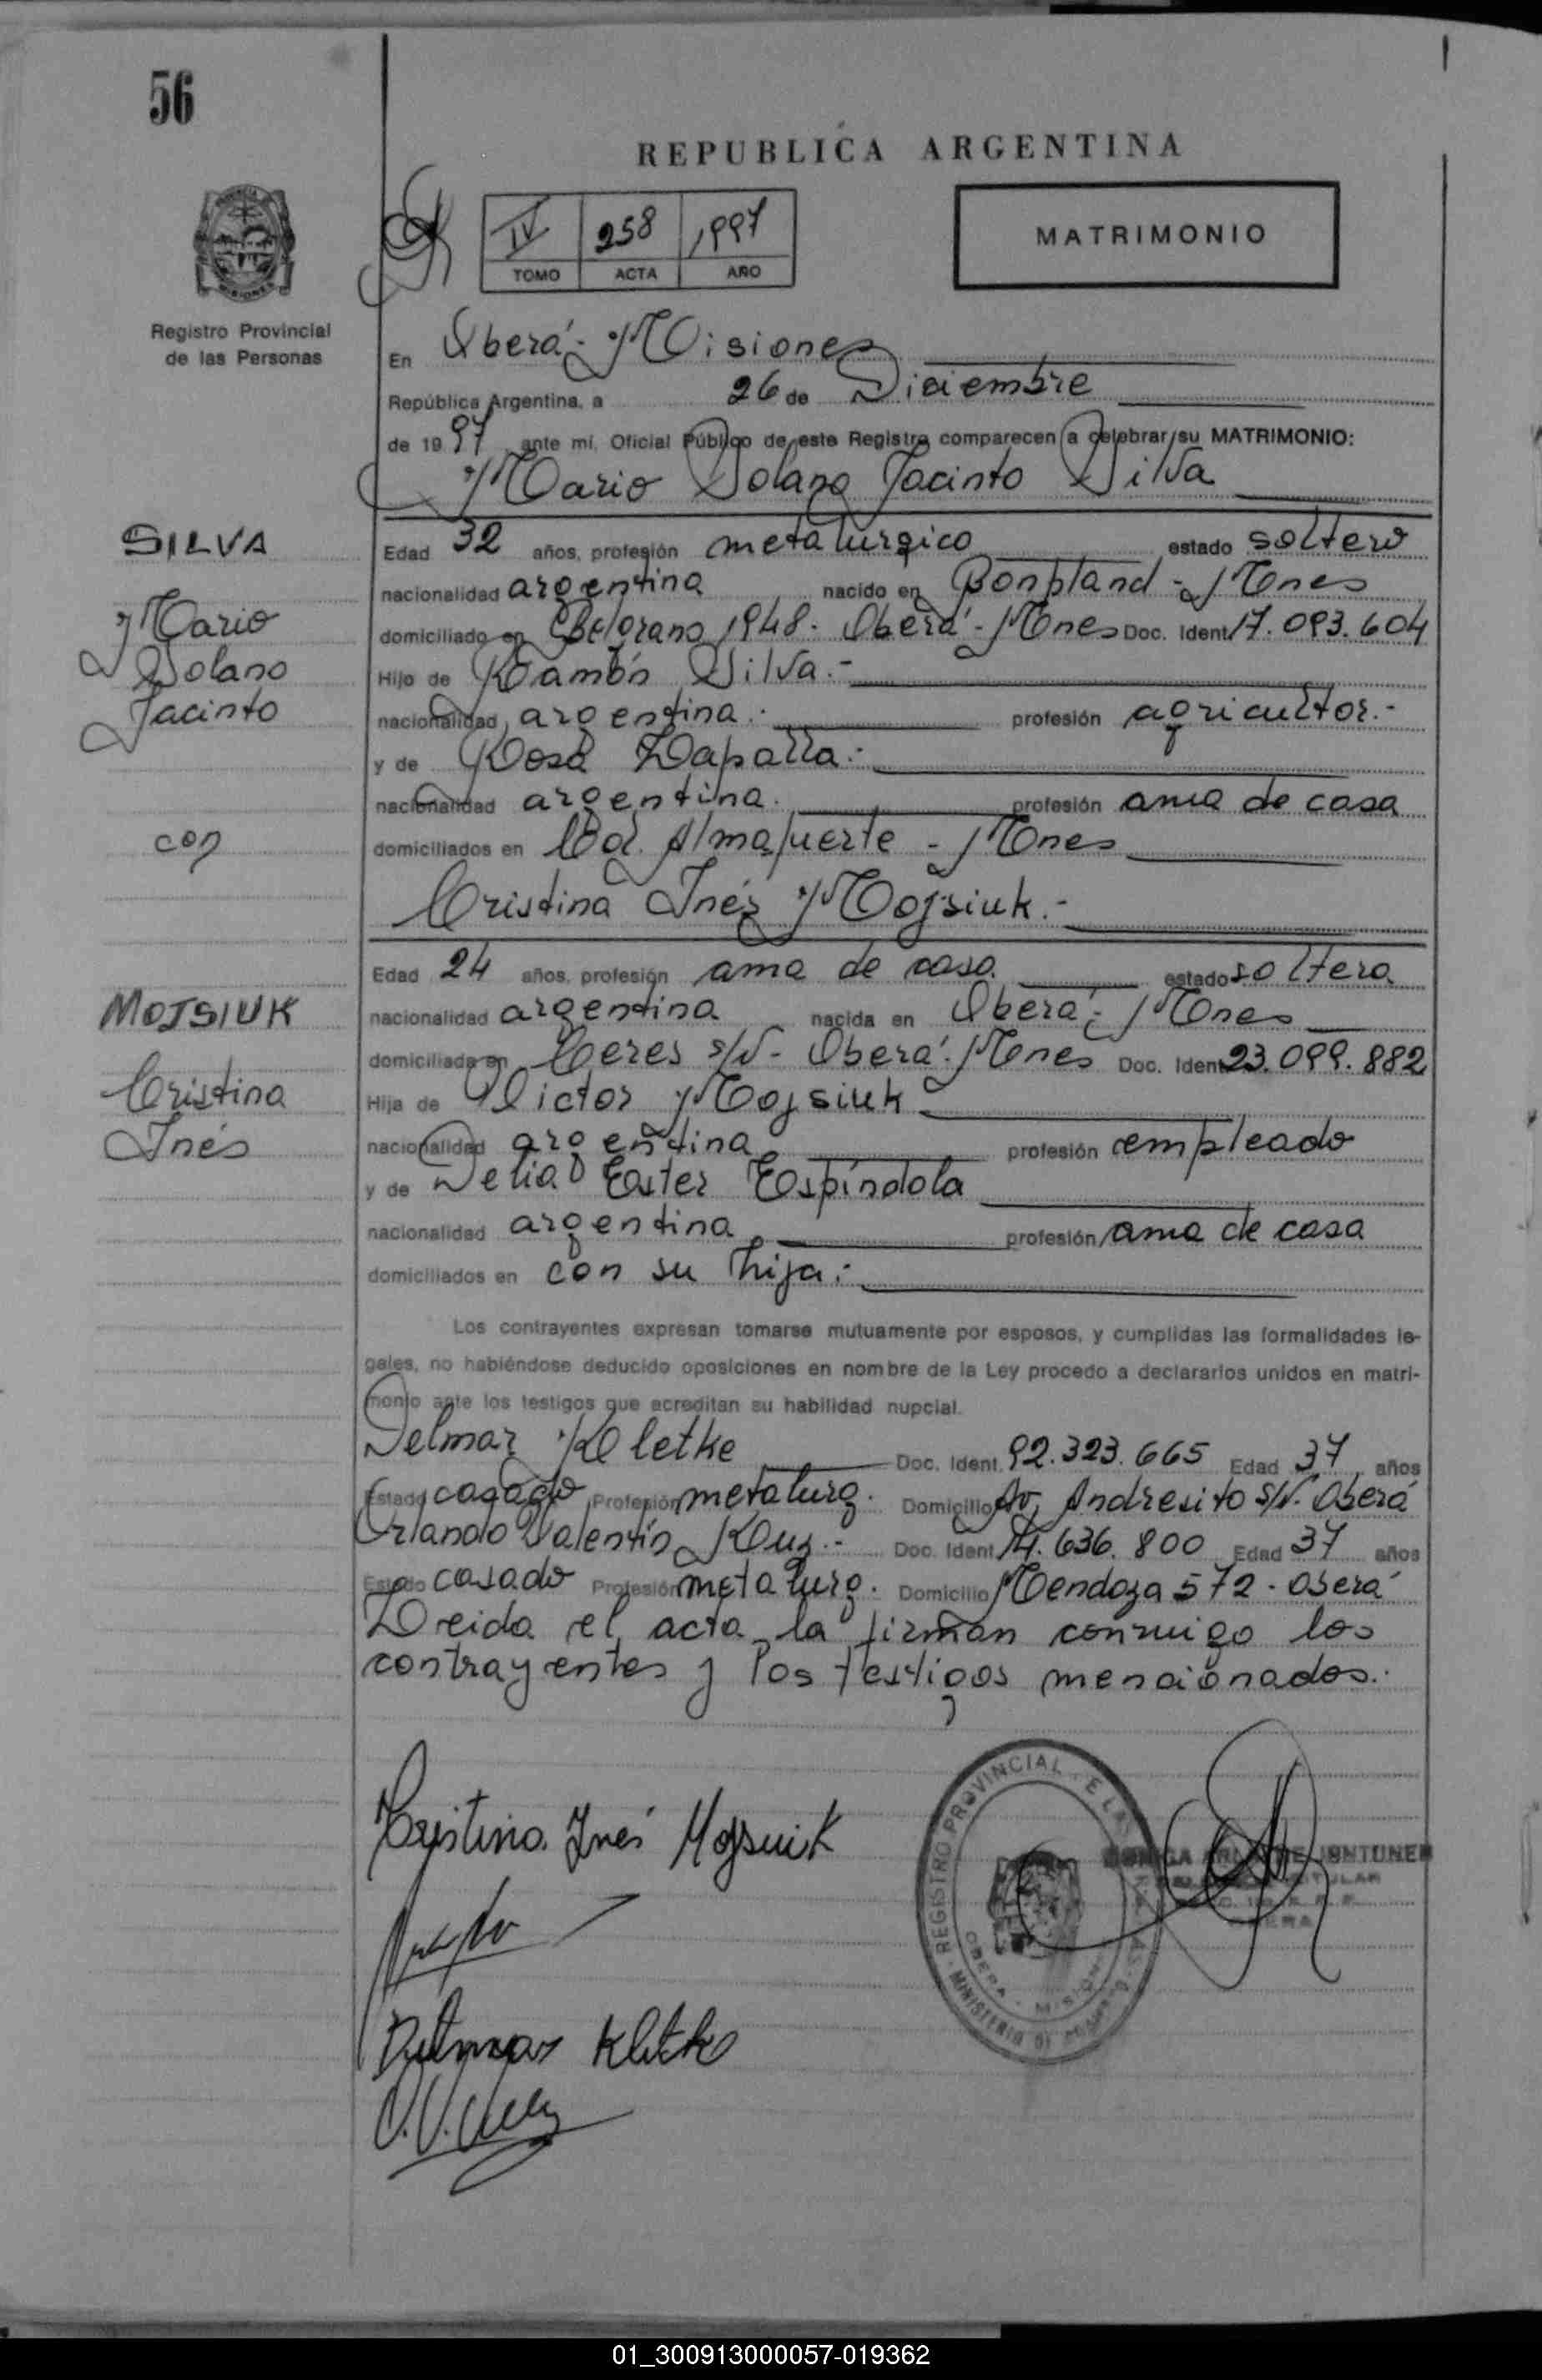 56
REPUBLICA ARGENTINA
IV 258 1997
TOMO ACTA AÑO
MATRIMONIO
Registro Provincial
de las Personas
En Oberá - Misiones
República Argentina, a 26 de Diciembre
de 1997 ante mí, Oficial Público de este Registro comparecen a celebrar su MATRIMONIO:
Mario Solano Jacinto Silva
SILVA
Mario
Solano
Jacinto
con
Edad 32 años, profesión metalurgico estado soltero
nacionalidad argentina nacido en Bonpland - Mnes
domiciliado en Belgrano 1948 - Oberá - Mnes Doc. Ident. 17.093.604
Hijo de Ramón Silva.-
nacionalidad argentina.- profesión agricultor.-
y de Rosa Zapalla.-
nacionalidad argentina. profesión ama de casa
domiciliados en Col. Almafuerte - Mnes
Cristina Inés Mojsiuk.-
MOJSIUK
Cristina
Inés
Edad 24 años, profesión ama de casa. estado soltera
nacionalidad argentina nacida en Oberá - Mnes
domiciliada en Ceres s/N - Oberá - Mnes Doc. Ident. 23.099.882
Hija de Victor Mojsiuk
nacionalidad argentina profesión empleado
y de Delia Ester Espíndola
nacionalidad argentina profesión ama de casa
domiciliados en con su hija.-
Los contrayentes expresan tomarse mutuamente por esposos, y cumplidas las formalidades le-
gales, no habiéndose deducido oposiciones en nombre de la Ley procedo a declararlos unidos en matri-
monio ante los testigos que acreditan su habilidad nupcial.
Delmar Kletke Doc. Ident. 92.323.665 Edad 37 años
Estado casado Profesión metalurg. Domicilio Av. Andresito s/N. Oberá
Orlando Valentín Kuz.- Doc. Ident. 14.636.800 Edad 37 años
Estado casado Profesión metalurg. Domicilio Mendoza 572 - Oberá
Leida el acta, la firman conmigo los
contrayentes y los testigos mencionados.-
Cristina Inés Mojsiuk
REGISTRO PROVINCIAL DE LAS
MINISTERIO DE GOBIERNO
OBERA - MISIONES
OBERA
Delmar Kletke
01_300913000057-019362